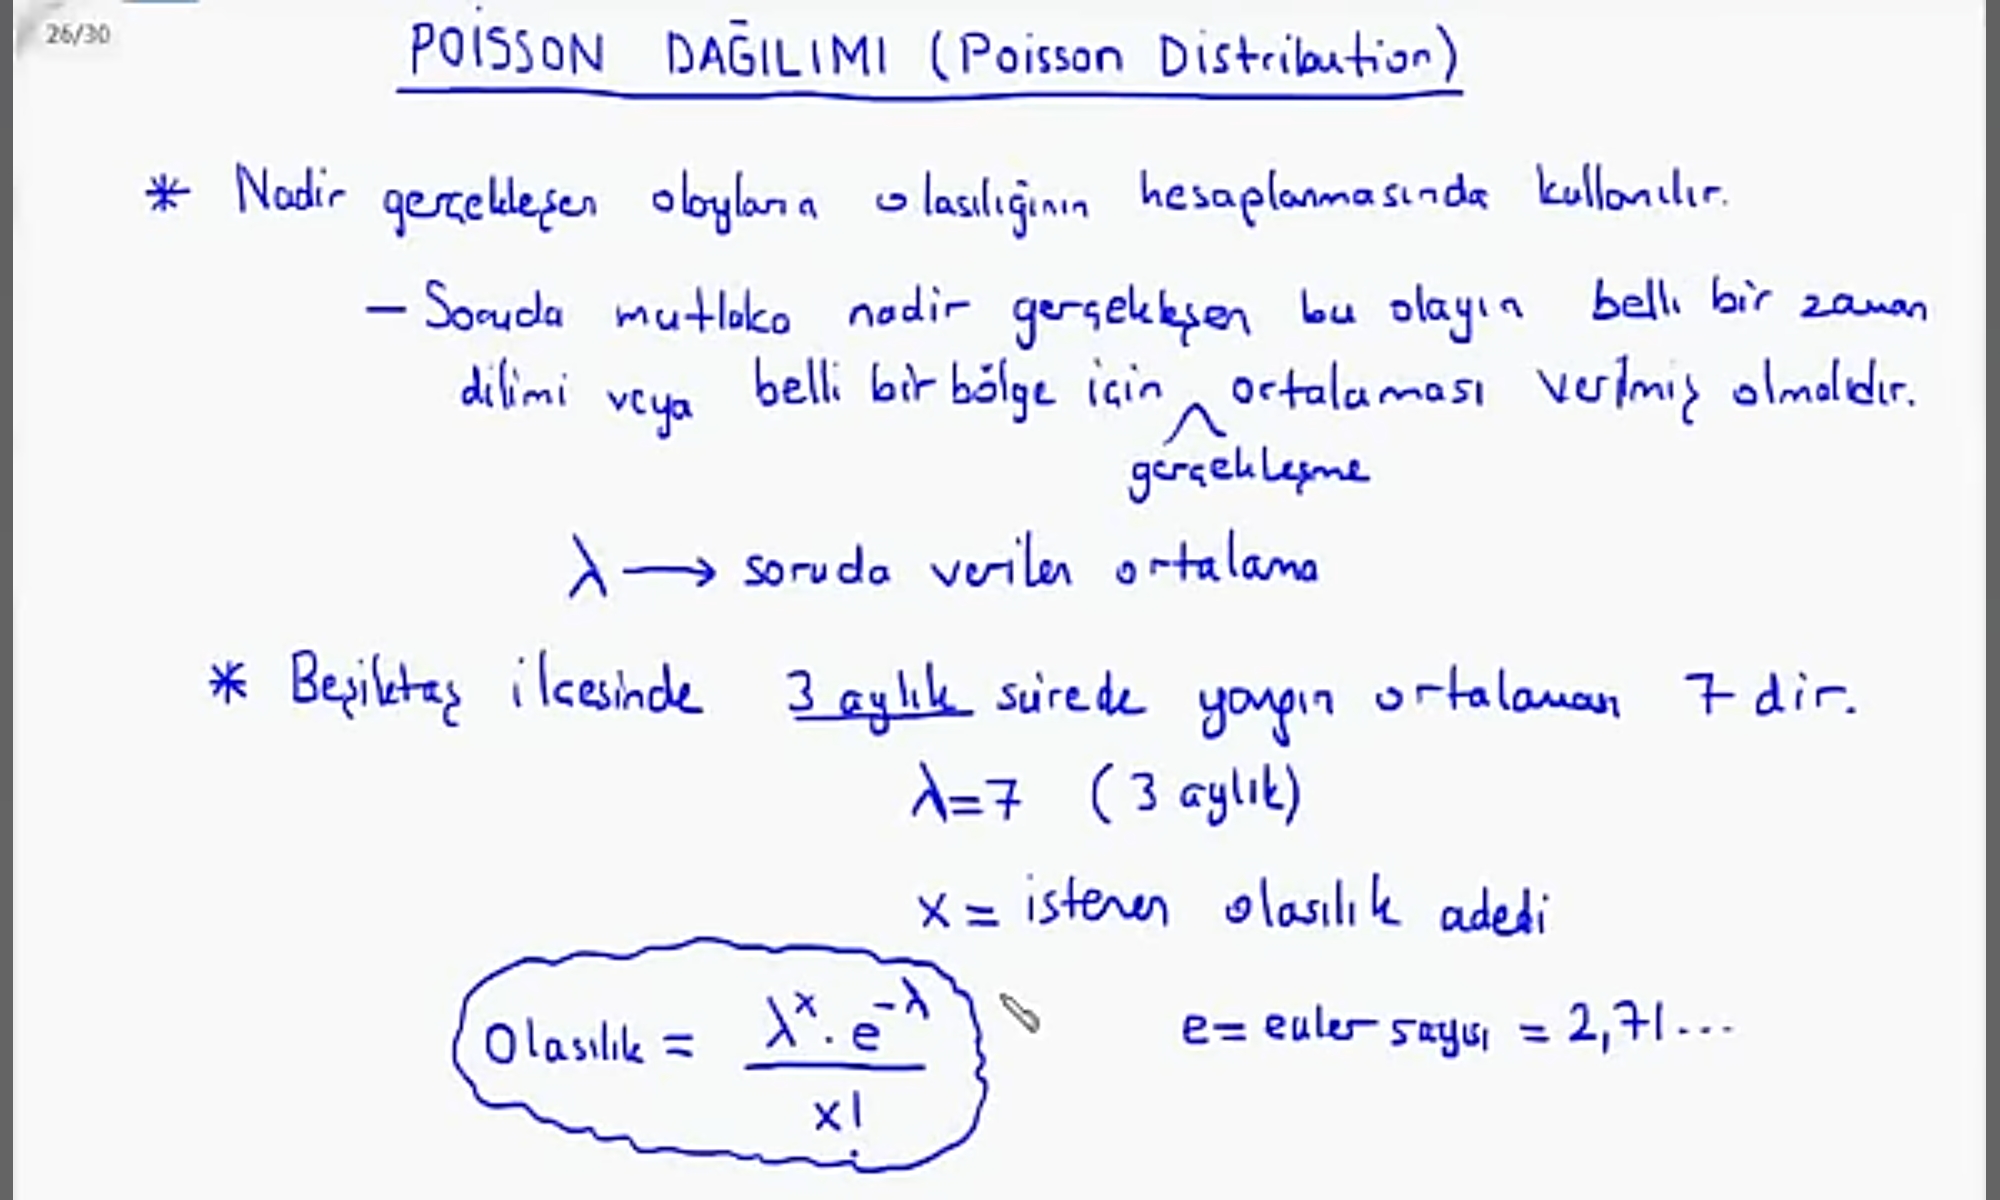 26/30
POİSSON DAĞILIMI (Poisson Distribution)
* Nadir gerçekleşen olayların olasılığının hesaplanmasında kullanılır.
– Soruda mutlaka nadir gerçekleşen bu olayın belli bir zaman
dilimi veya belli bir bölge için ortalaması verilmiş olmalıdır.
gerçekleşme
λ → soruda verilen ortalama
* Beşiktaş ilçesinde 3 aylık sürede yangın ortalaması 7 dir.
λ=7 (3 aylık)
x = istenen olasılık adedi
Olasılık = λ^x . e^-λ / x!
e = euler sayısı = 2,71...